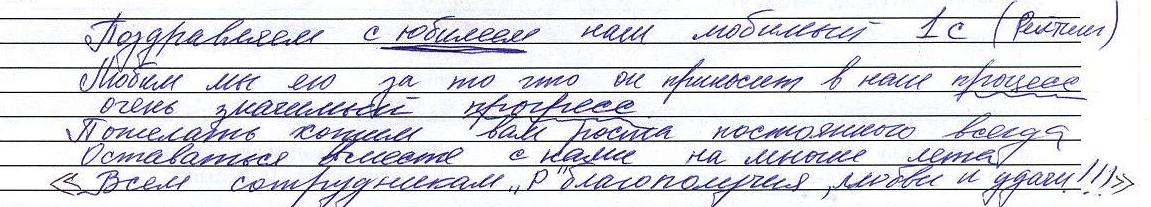 Поздравляем с юбилеем наш любимый 1с (Рейтинг)
Любим мы его за то что он приносит в наш процесс
очень значимый прогресс
Пожелать хотим вам роста постоянного всегда
Оставаться вместе с нами на многие лета
«Всем сотрудникам „Р“ благополучия, любви и удачи!!!»